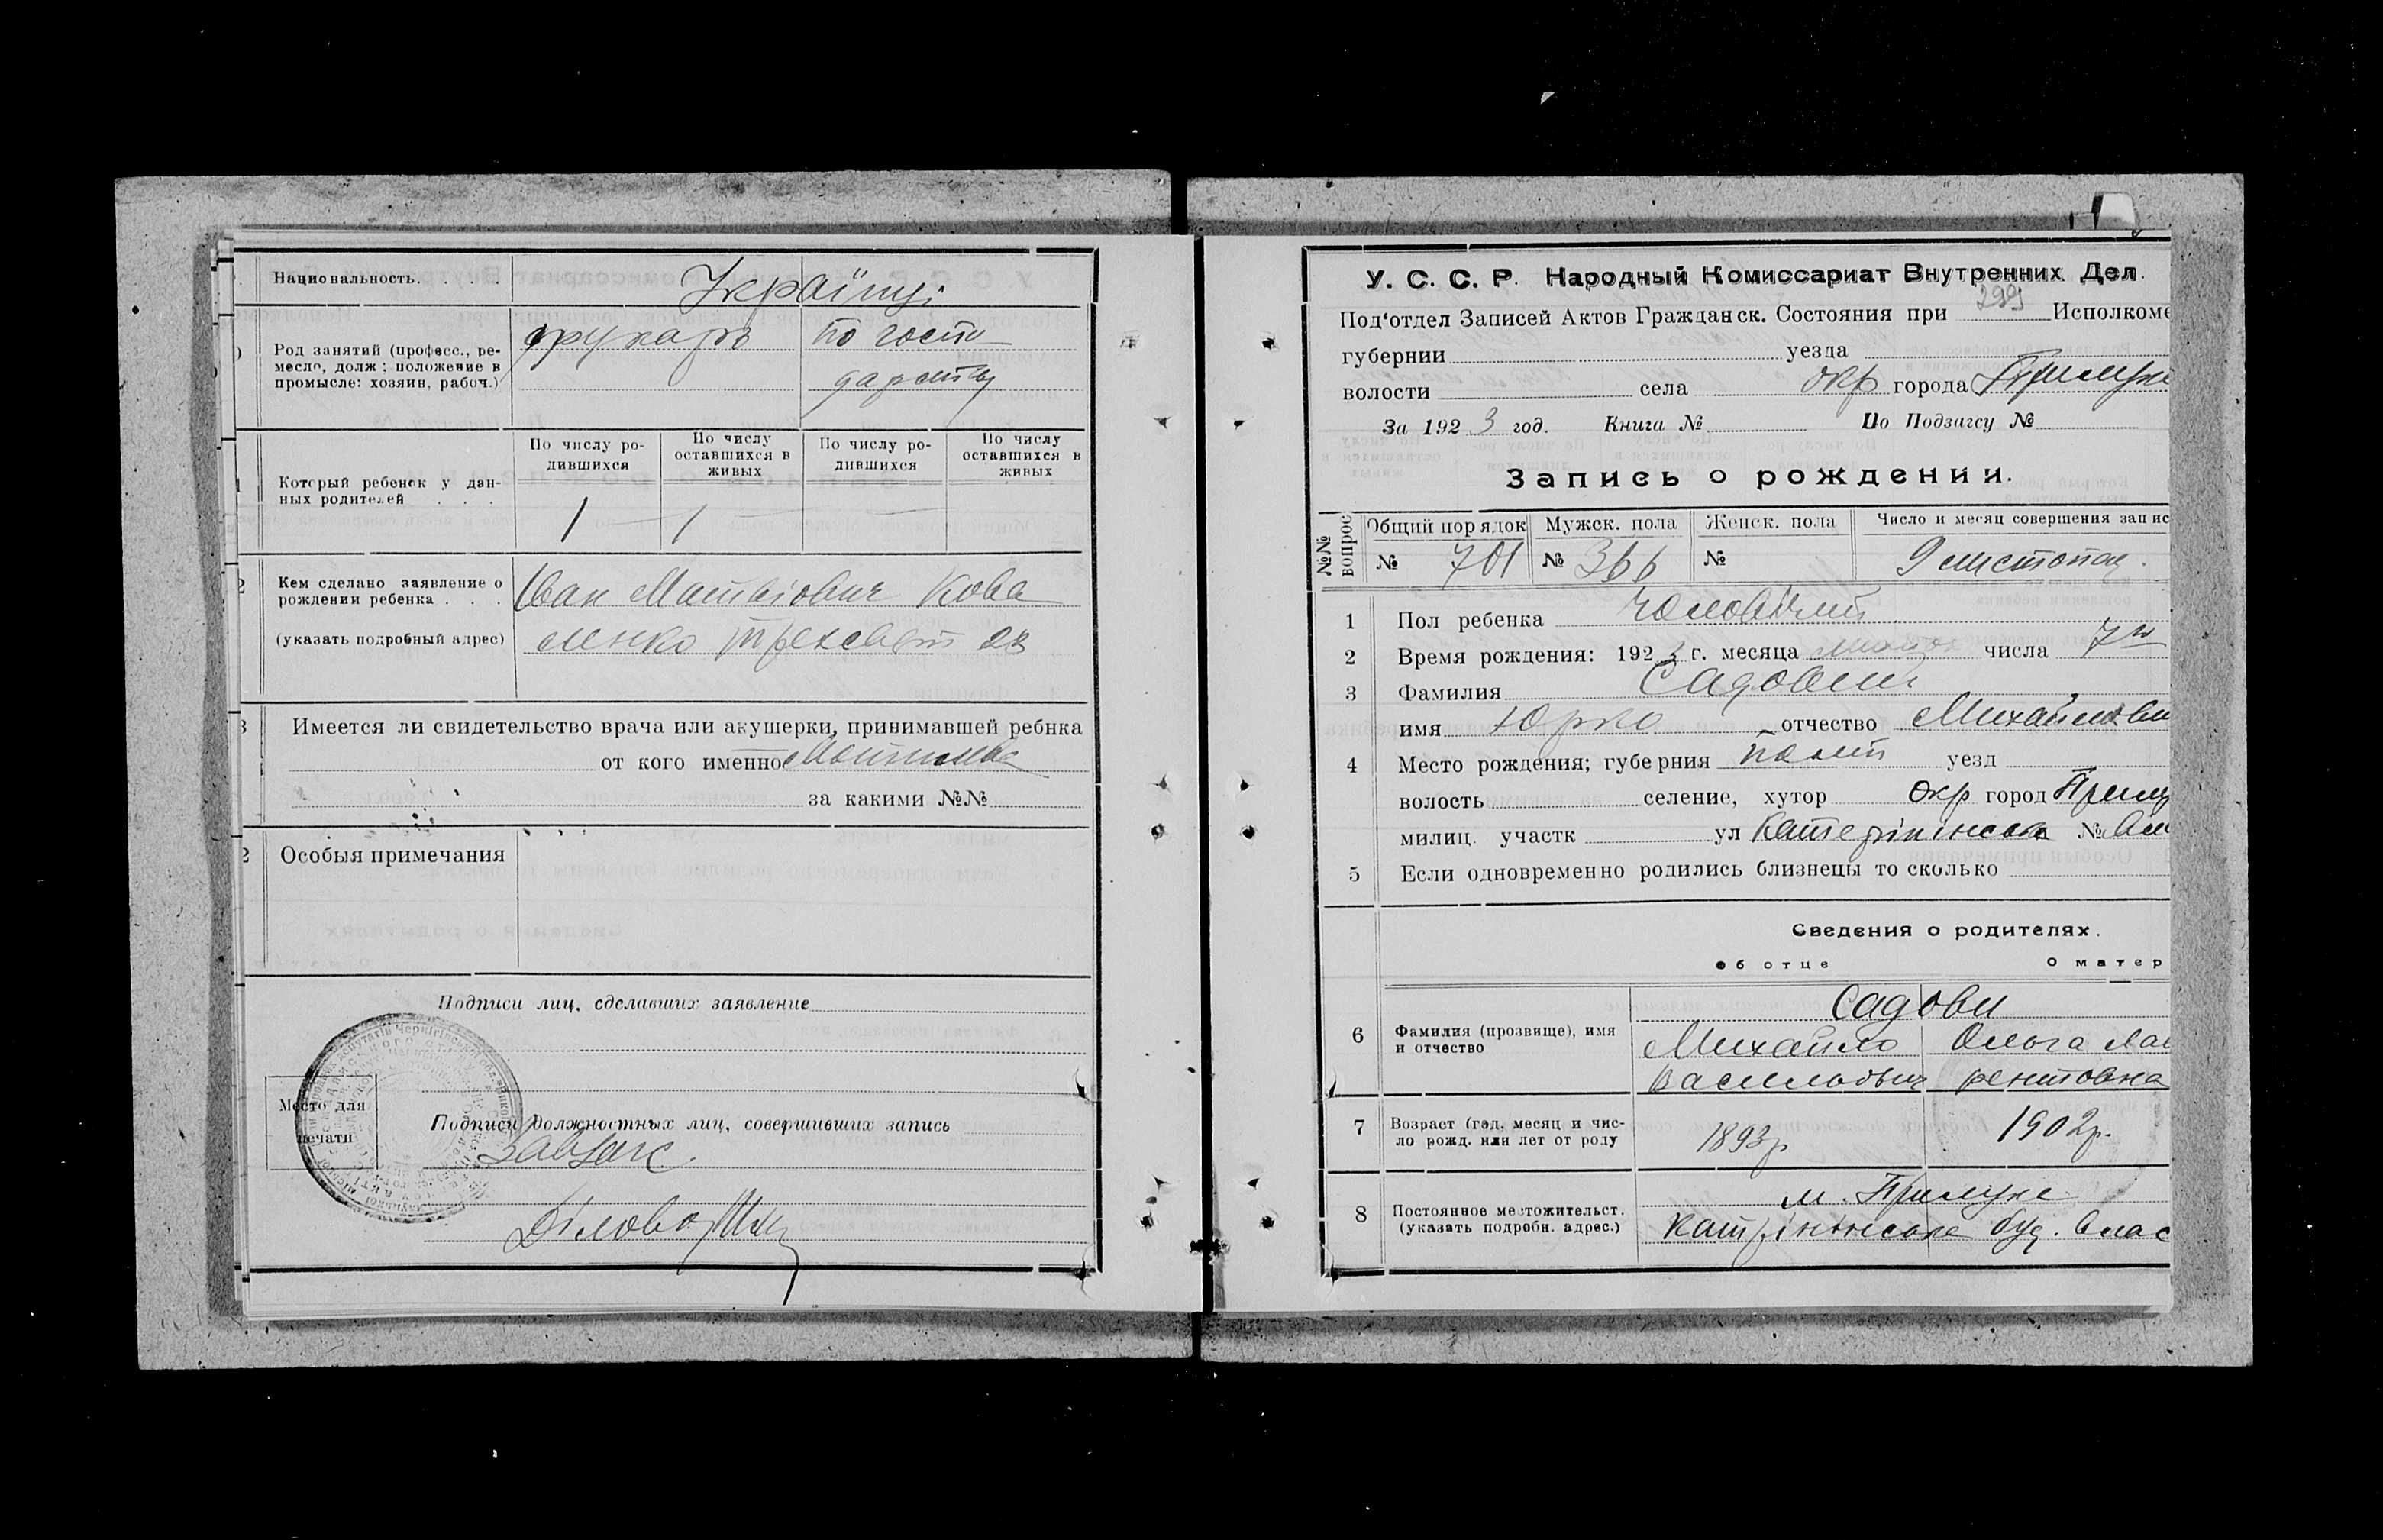 Национальность. . . . Українці
Род занятий (професс., ре-
месло, долж; положение в
промысле: хозяин, рабоч.)
друкаръ по госпо
дарству
Который ребенок у дан-
ных родителей . . .
По числу ро-
дившихся
По числу
оставшихся в
живых
По числу ро-
дившихся
По числу
оставшихся в
живых
1 1
Кем сделано заявление о
рождении ребенка . . .
(указать подробный адрес)
Іван Матвіович Кова
ленко
Имеется ли свидетельство врача или акушерки, принимавшей ребнка
от кого именно
за какими №№
Особыя примечания
Подписи лиц, сделавших заявление
Место для
печати
Подписи должностных лиц, совершивших запись
Завзагс
Діловод
У. С. С. Р. Народный Комиссариат Внутренних Дел.
299
Под'отдел Записей Актов Гражданск. Состояния при Исполкоме
губернии уезда
волости села окр города Прилуки
За 1923 год. Книга № По Подзагсу №
Запись о рождении.
№№ вопрос
Общий порядок Мужск. пола Женск. пола Число и месяц совершения запис
№ 701 № 366 № 9 листопад.
1 Пол ребенка чоловічий
2 Время рождения: 1923 г. месяца числа 7го
3 Фамилия Садовий
имя Юрко отчество Михайлови
4 Место рождения; губерния Полт уезд
волость селение, хутор окр город Прилу
милиц. участк ул Катерінінська № Вл
5 Если одновременно родились близнецы то сколько
Сведения о родителях.
об отце О матер
6 Фамилия (прозвище), имя
и отчество
Садови
Михайло Ольга Лав
Васильович рентовна
7 Возраст (год, месяц и чис-
ло рожд. или лет от роду
1893р 1902р.
8 Постоянное местожительст.
(указать подробн. адрес.)
м. Прилуки
Катрінінська буд. Влас